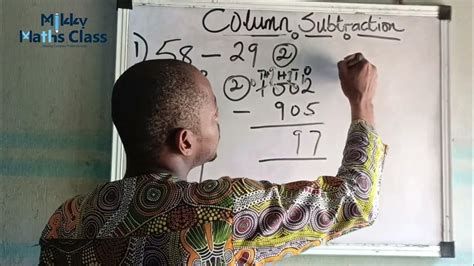 Mikky
Maths Class
Column Subtraction
1) 58 - 29 ②
Th H T O
② 1002
- 905
97